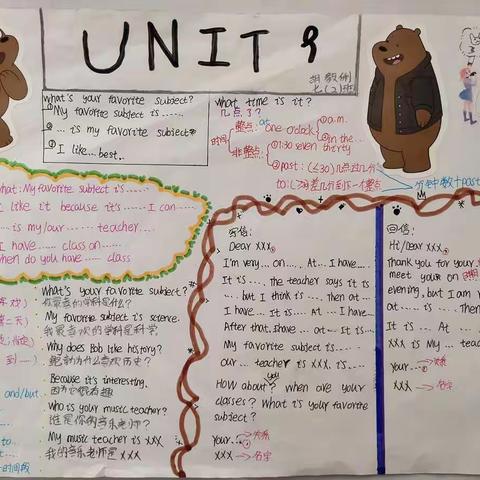 UNIT 9
七(2)班
what's your favorite subject?
①My favorite subject is......
②... is my favorite subject
③I like...best..
what time is it?
几点了?
时间
整点:at
one o'clock
a.m.
in the...
非整点:
①1:30 seven thirty
②past:(≤30)几点过几分
to:(>30)差几分到下一个整点
分钟数+past
what: My favorite subject is......
I like it because it's......I can......
... is my/our ...... teacher....
I have ...... class on......
when do you have .... class
What's your favorite subject?
我最喜欢的学科是什么?
My favorite subject is science.
我最喜欢的学科是科学
Why does Bob like history?
鲍勃为什么喜欢历史?
Because it's interesting.
因为它很有趣
and/but
Who is your music teacher?
谁是你的音乐老师?
My music teacher is XXX
我的音乐老师是XXX
写信:
Dear XXX,
I'm very...on....At...I have...
It is.... The teacher says it is
... but I think is.... Then at...
I have... It is... At ... I have...
After that,Ihave ... at... It is...
My favorite subject is.....
our ... teacher is XXX. is...
How about you? when are your
classes? What is your favorite
subject?
Your...→关系
XXX→名字
回信:
Hi/Dear XXX,
Thank you for your
meet your on
evening, but I am
at..... is... Then at
It is... At ...
XXX is My ... teac
Your...→关系
XXX→名字